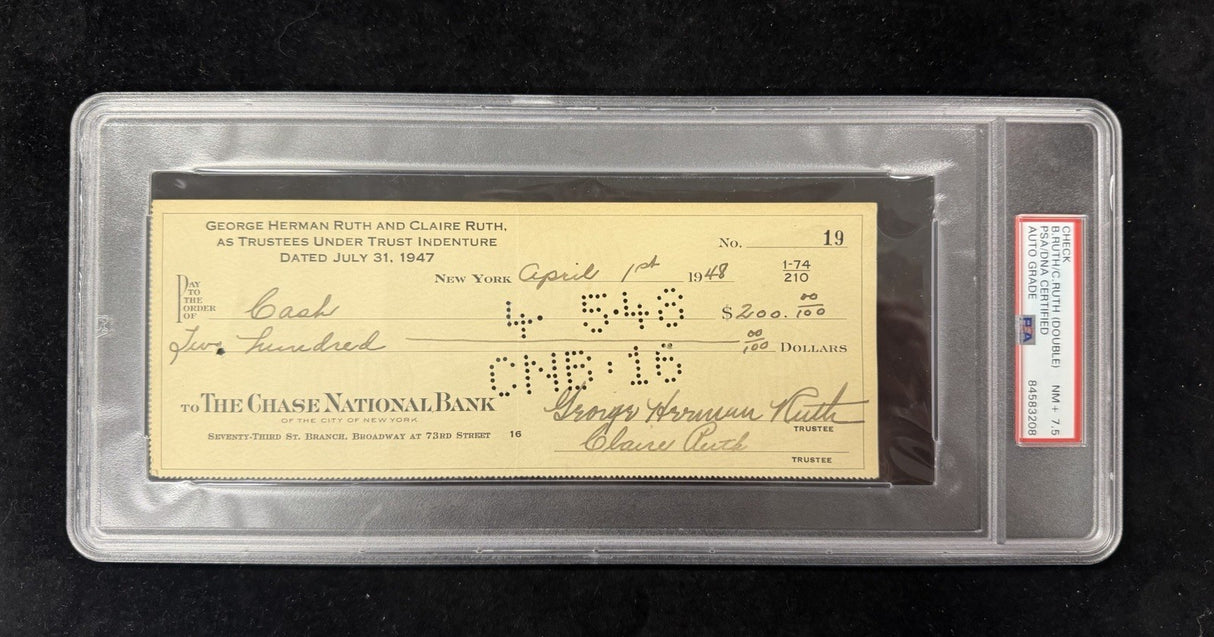 GEORGE HERMAN RUTH AND CLAIRE RUTH,
AS TRUSTEES UNDER TRUST INDENTURE
DATED JULY 31, 1947
No. 19
NEW YORK April 1st 1948
1-74
210
PAY
TO
THE
ORDER
OF
Cash
$200. 00/100
4·5·48
Two hundred 00/100 DOLLARS
CMB·16
TO THE CHASE NATIONAL BANK
OF THE CITY OF NEW YORK
SEVENTY-THIRD ST. BRANCH, BROADWAY AT 73RD STREET 16
George Herman Ruth
TRUSTEE
Claire Ruth
TRUSTEE
CHECK
B.RUTH/C.RUTH (DOUBLE) NM+ 7.5
PSA/DNA CERTIFIED
AUTO GRADE PSA 84583208